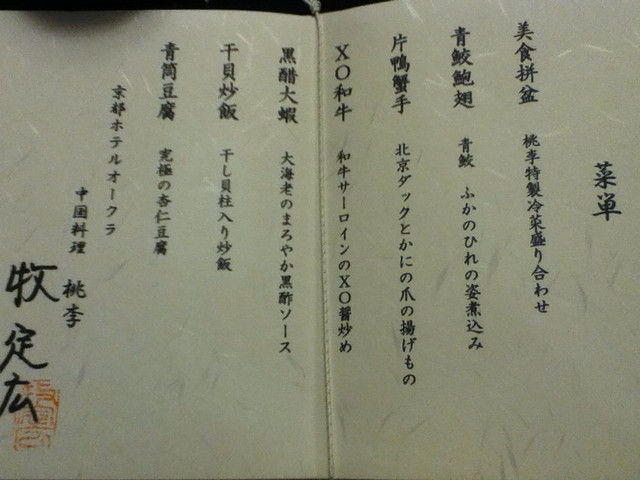 菜単
美食拼盆 桃李特製冷菜盛り合わせ
青鮫鮑翅 青鮫 ふかのひれの姿煮込み
片鴨蟹手 北京ダックとかにの爪の揚げもの
XO和牛 和牛サーロインのXO醤炒め
黒醋大蝦 大海老のまろやか黒酢ソース
干貝炒飯 干し貝柱入り炒飯
青筒豆腐 究極の杏仁豆腐
京都ホテルオークラ
中国料理 桃李
牧定広